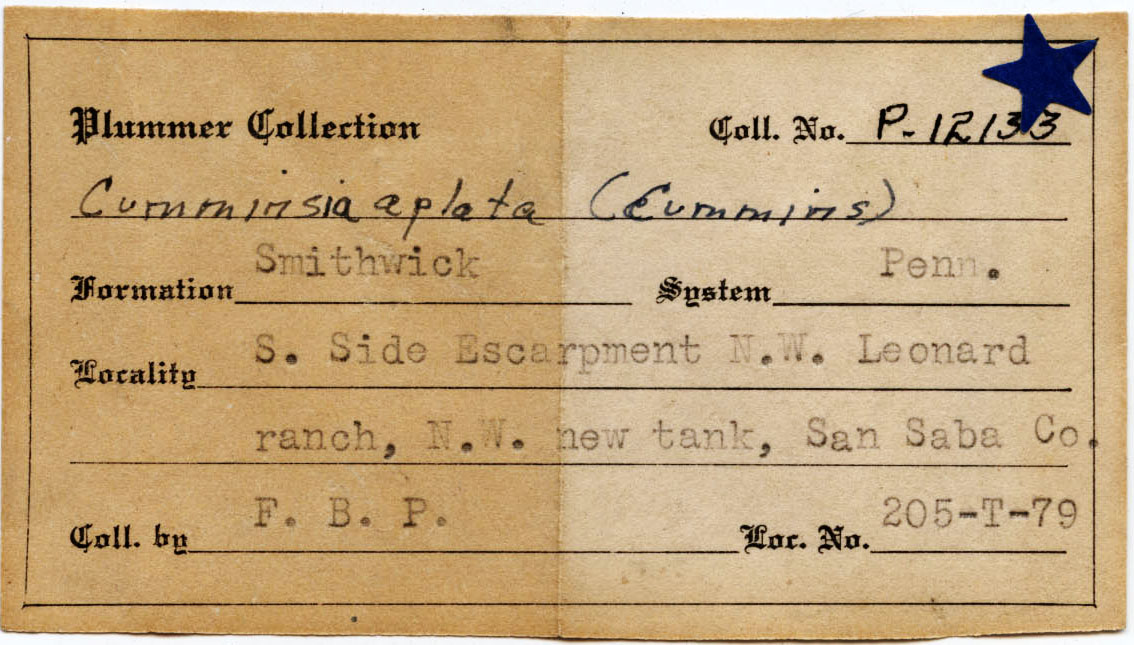 Plummer Collection Coll. No. P-12133
Cumminsia aplata (Cummins)
Formation Smithwick System Penn.
Locality S. Side Escarpment N.W. Leonard
ranch, N.W. new tank, San Saba Co.
Coll. by F. B. P. Loc. No. 205-T-79